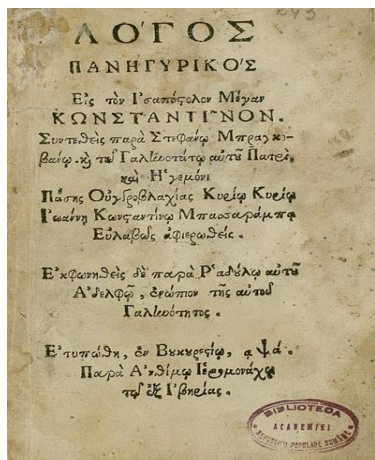 ΛΟΓΟΣ
ΠΑΝΗΓΥΡΙΚΟΣ
Εἰς τὸν Ἰσαπόστολον Μέγαν
ΚΩΝΣΤΑΝΤΙ῀ΝΟΝ.
Συντεθεὶς παρὰ Στεφάνῳ Μπραγκο-
βάνῳ. κỳ τῷ Γαληνοτάτῳ αὐτοῦ Πατρὶ,
καὶ Ἡγεμόνι
Πάσης Οὐγγροβλαχίας Κυρίῳ Κυρίῳ
Ἰωάννῃ Κωνσταντίνῳ Μπασαράμπᾳ
Εὐλαβῶς ἀφιερωθείς.
Ἐκφωνηθεὶς δὲ παρὰ Ῥαδύλῳ αὐτοῦ
Ἀδελφῷ, ἐνώπιον τῆς αὐτοῦ
Γαληνότητος.
Ἐτυπώθη, ἐν Βυκυρεστίῳ, αψά.
Παρὰ Ἀνθίμῳ Ἱερομονάχῳ
τῷ ἐξ Ἰβηρίας.
BIBLIOTECA
ACADEMIEI
REPUBLICII POPULARE ROMÎNE